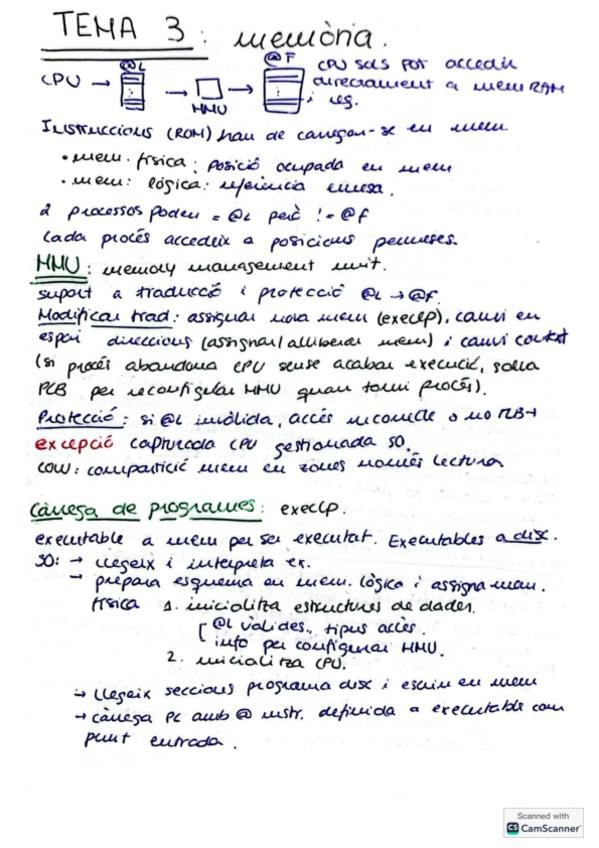 TEMA 3: memòria.
@L @F
CPU → → MMU →
CPU sols pot accedir
directament a mem RAM
i reg.
Instruccions (ROM) han de carregar-se en mem.
• mem. física: posició ocupada en mem
• mem: lògica: referència emesa.
2 processos poden = @L però != @F
Cada procés accedeix a posicions permeses.
MMU: memory management unit.
suport a traducció i protecció @L → @F.
Modificar trad: assignar nova mem (execlp), canvi en
espai direccions (assignar/alliberar mem) i canvi context
(si procés abandona CPU sense acabar execució, salva
PCB per reconfigurar MMU quan torni procés).
Protecció: si @L invàlida, accés incorrecte o no TLB→
excepció capturada CPU gestionada SO.
COW: compartició mem en zones només lectura
Càrrega de programes: execlp.
executable a mem per ser executat. Executables a disc.
SO: → llegeix i interpreta ex.
→ prepara esquema en mem. lògica i assigna mem.
física 1. inicialitza estructures de dades.
[ @L vàlides, tipus accés.
info per configurar MMU.
2. inicialitza CPU.
→ llegeix seccions programa disc i escriu en mem
→ càrrega PC amb @ instr. definida a executable com
punt entrada.
Scanned with
CS CamScanner